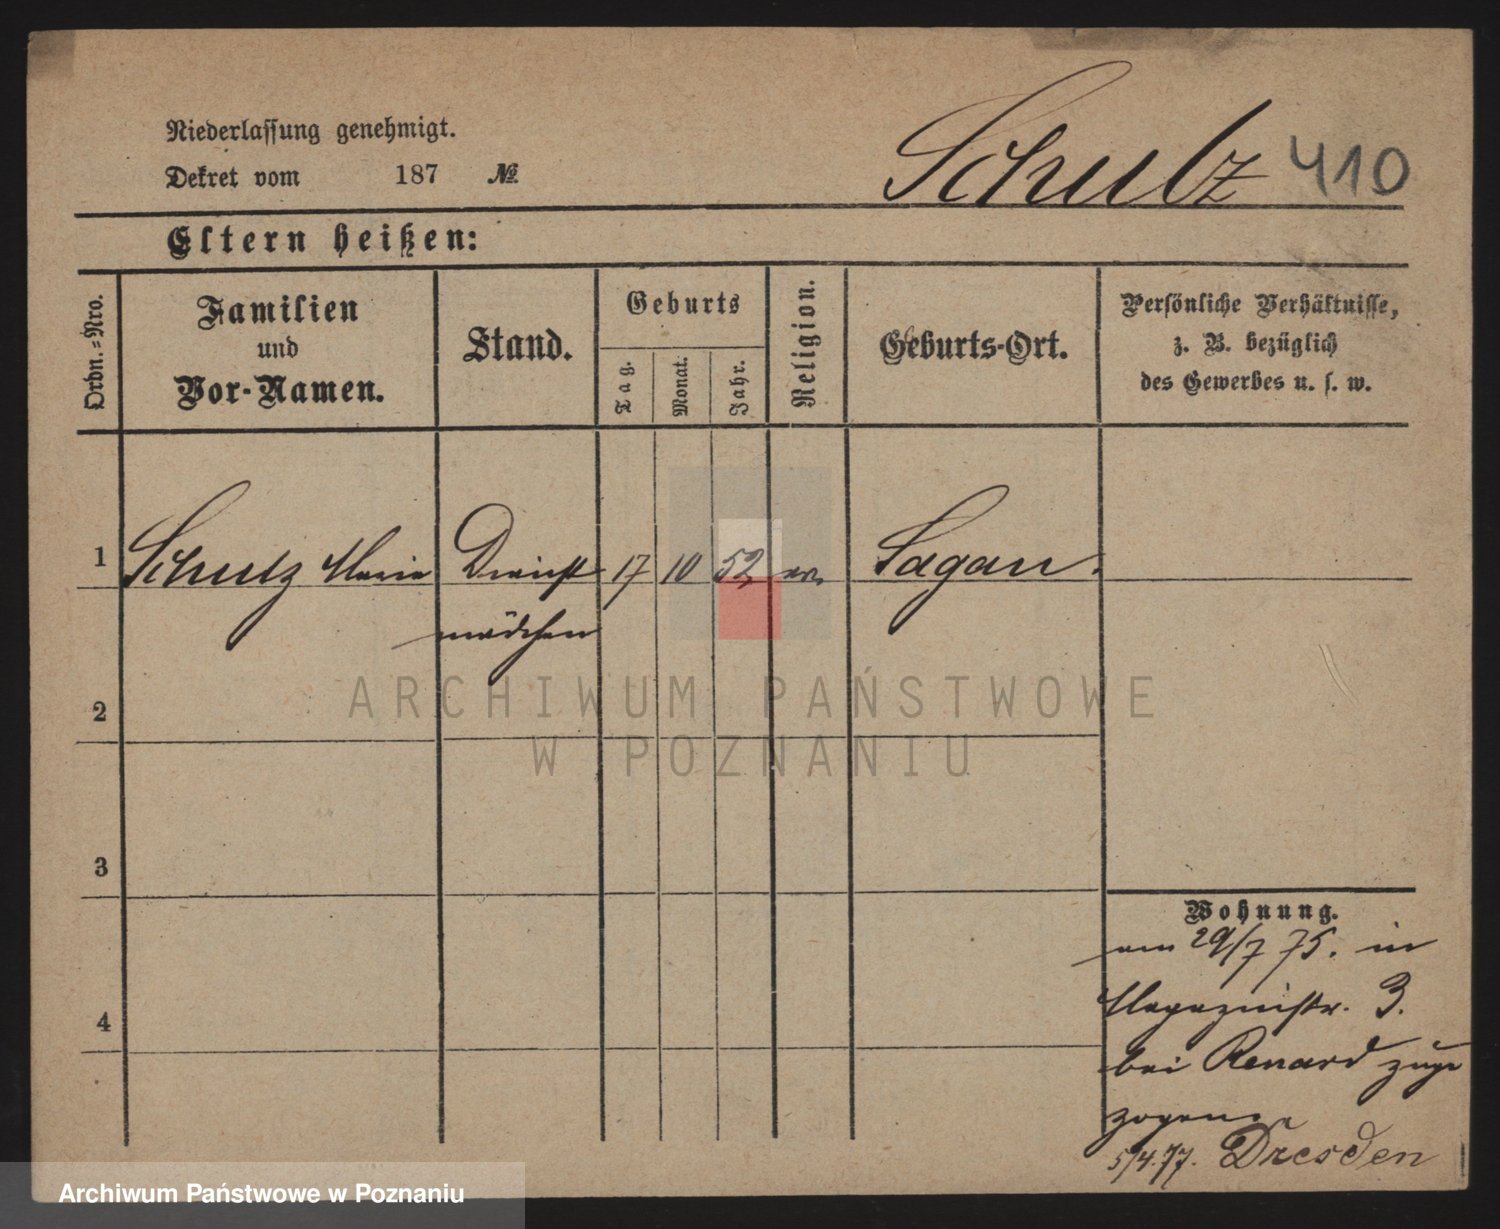 Niederlassung genehmigt.
Dekret vom 187 №
Schulz 410
Eltern heißen:
Ordn.-Nro.
Familien
und
Vor-Namen.
Stand.
Geburts
Tag.
Monat.
Jahr.
Religion.
Geburts-Ort.
Persönliche Verhältnisse,
z. B. bezüglich
des Gewerbes u. s. w.
1 Schulz Marie Dienst 17 10 52 ev. Sagan.
mädchen
ARCHIWUM PAŃSTWOWE
W POZNANIU
2
3
4
Wohnung.
am 29/7 75. in
Magazinstr. 3.
bei Renard zuge
zogen
5/4.77. Dresden
Archiwum Państwowe w Poznaniu